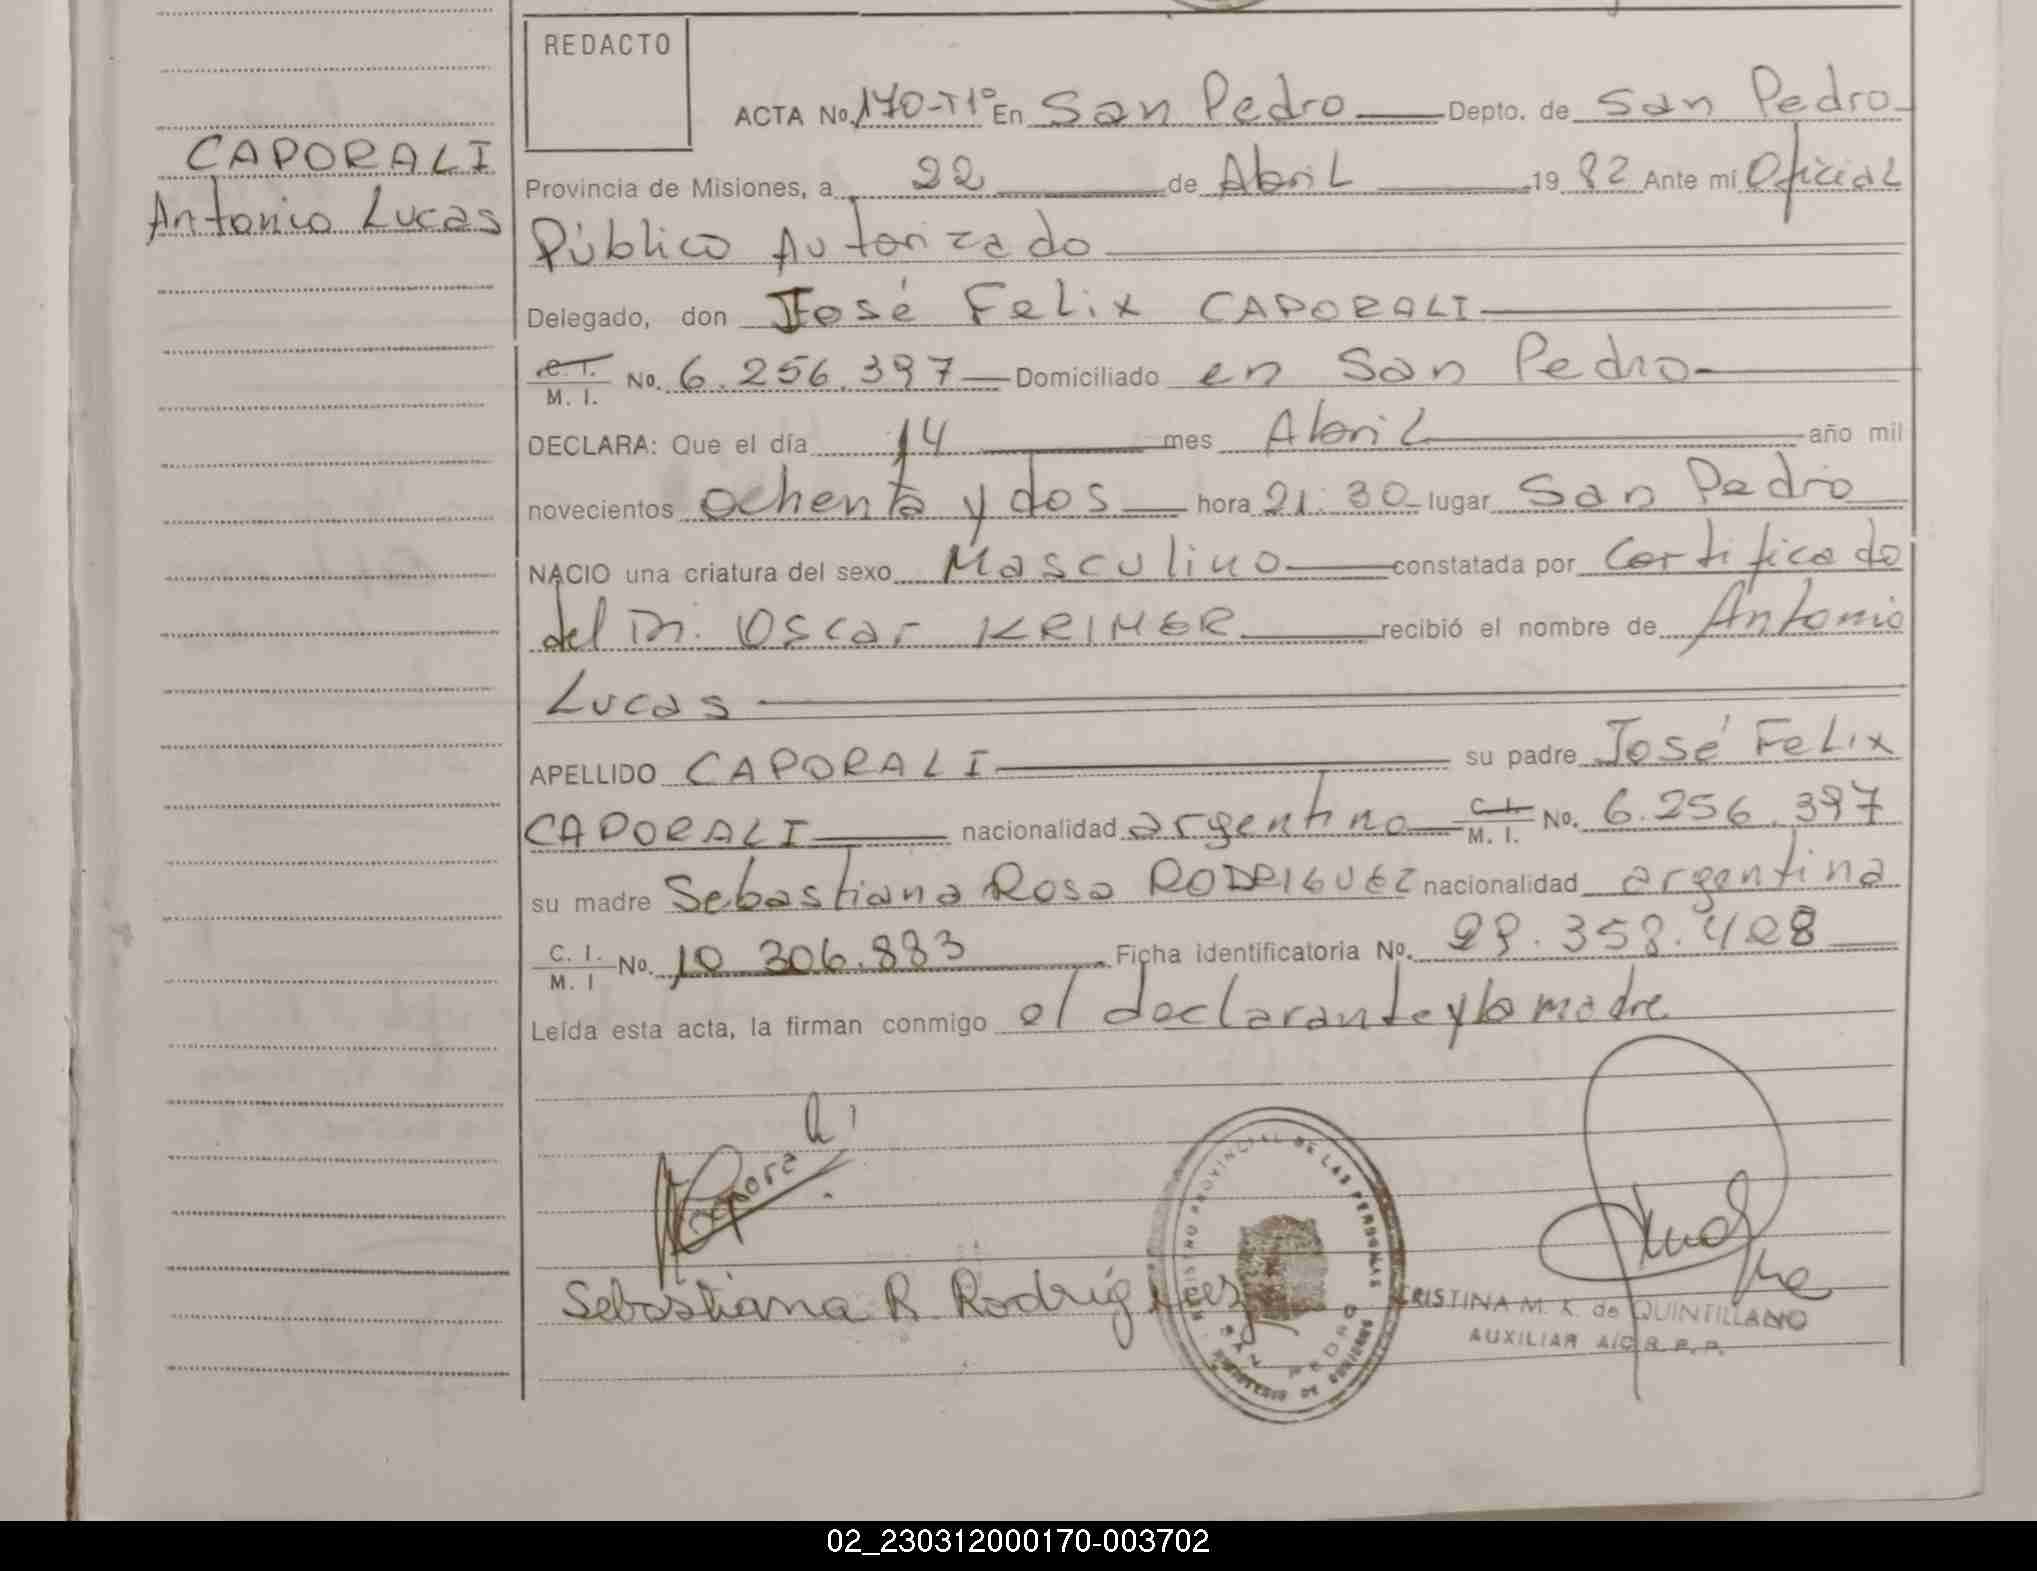 REDACTO
ACTA No. 170-T1º En San Pedro Depto. de San Pedro
CAPORALI
Antonio Lucas
Provincia de Misiones, a 22 de Abril 19 82 Ante mí Oficial
Público Autorizado
Delegado, don José Felix CAPORALI
C. I.
M. I. No. 6.256.397 Domiciliado en San Pedro
DECLARA: Que el día 14 mes Abril año mil
novecientos ochenta y dos hora 21:30 lugar San Pedro
NACIO una criatura del sexo Masculino constatada por Certificado
del Dr. Oscar KRIMER recibió el nombre de Antonio
Lucas
APELLIDO CAPORALI su padre José Felix
CAPORALI nacionalidad argentino C. I. M. I. No. 6.256.397
su madre Sebastiana Rosa RODRIGUEZ nacionalidad argentina
C. I.
M. I No. 10 306.883 Ficha identificatoria No. 29.358.428
Leída esta acta, la firman conmigo el declarante y la madre
Sebastiana R. Rodríguez
REGISTRO PROVINCIAL DE LAS PERSONAS
SAN PEDRO
MINISTERIO DE GOBIERNO
CRISTINA M. K. de QUINTILLANO
AUXILIAR A/C R. P. P.
02_230312000170-003702